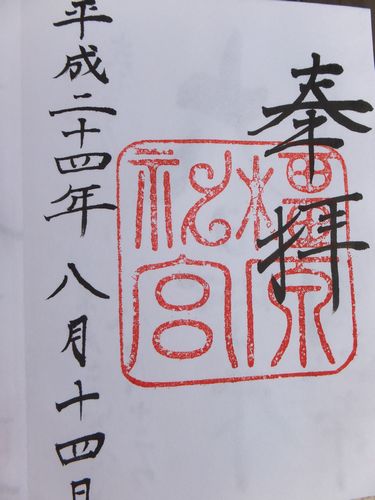 奉拝
橿原
神宮
平成二十四年八月十四日